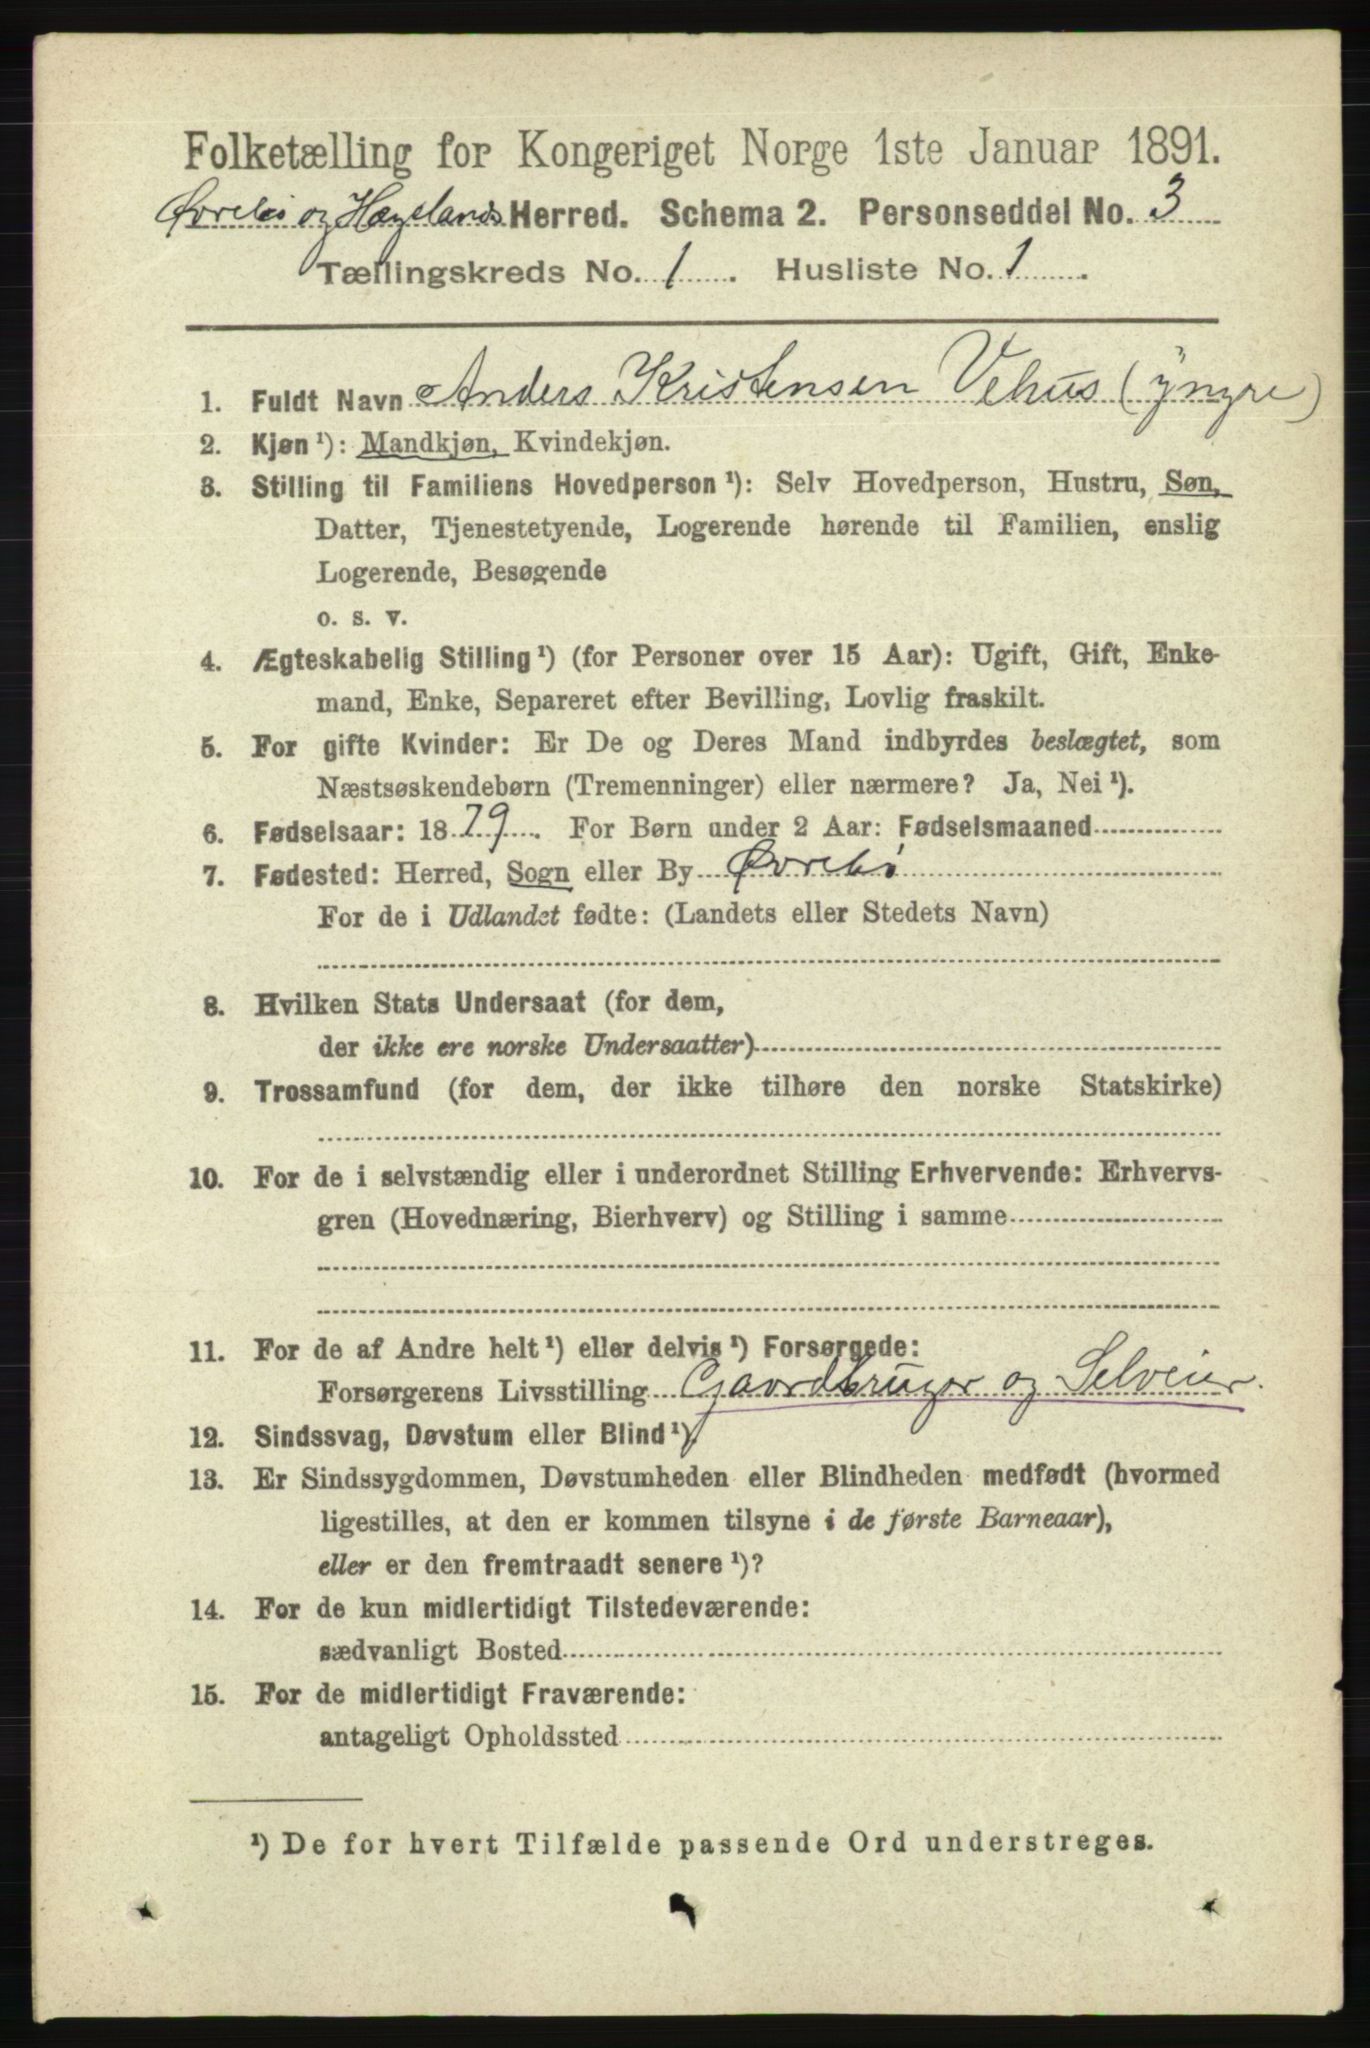 Folketælling for Kongeriget Norge 1ste Januar 1891.
Øvrebø og Hægelands Herred. Schema 2. Personseddel No. 3
Tællingskreds No. 1. Husliste No. 1.
1. Fuldt Navn Anders Kristensen Vehus (yngre)
2. Kjøn ¹): Mandkjøn, Kvindekjøn.
3. Stilling til Familiens Hovedperson ¹): Selv Hovedperson, Hustru, Søn,
Datter, Tjenestetyende, Logerende hørende til Familien, enslig
Logerende, Besøgende
o. s. v.
4. Ægteskabelig Stilling ¹) (for Personer over 15 Aar): Ugift, Gift, Enke-
mand, Enke, Separeret efter Bevilling, Lovlig fraskilt.
5. For gifte Kvinder: Er De og Deres Mand indbyrdes beslægtet, som
Næstsøskendebørn (Tremenninger) eller nærmere? Ja, Nei ¹).
6. Fødselsaar: 1879. For Børn under 2 Aar: Fødselsmaaned
7. Fødested: Herred, Sogn eller By Øvrebø
For de i Udlandet fødte: (Landets eller Stedets Navn)
8. Hvilken Stats Undersaat (for dem,
der ikke ere norske Undersaatter)
9. Trossamfund (for dem, der ikke tilhøre den norske Statskirke)
10. For de i selvstændig eller i underordnet Stilling Erhvervende: Erhvervs-
gren (Hovednæring, Bierhverv) og Stilling i samme
11. For de af Andre helt ¹) eller delvis ¹) Forsørgede:
Forsørgerens Livsstilling Gaardbruger og Selveier.
12. Sindssvag, Døvstum eller Blind ¹).
13. Er Sindssygdommen, Døvstumheden eller Blindheden medfødt (hvormed
ligestilles, at den er kommen tilsyne i de første Barneaar),
eller er den fremtraadt senere ¹)?
14. For de kun midlertidigt Tilstedeværende:
sædvanligt Bosted
15. For de midlertidigt Fraværende:
antageligt Opholdssted
¹) De for hvert Tilfælde passende Ord understreges.